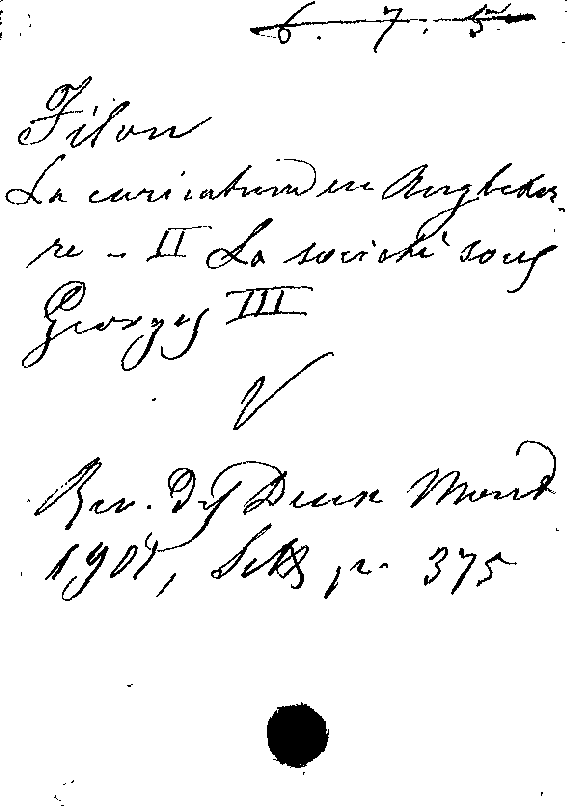 6. 7. 5
Filon
La caricature en Angleter-
re - II La société sous
Georges III
V
Rev. des Deux Mond
190, Sept p. 375